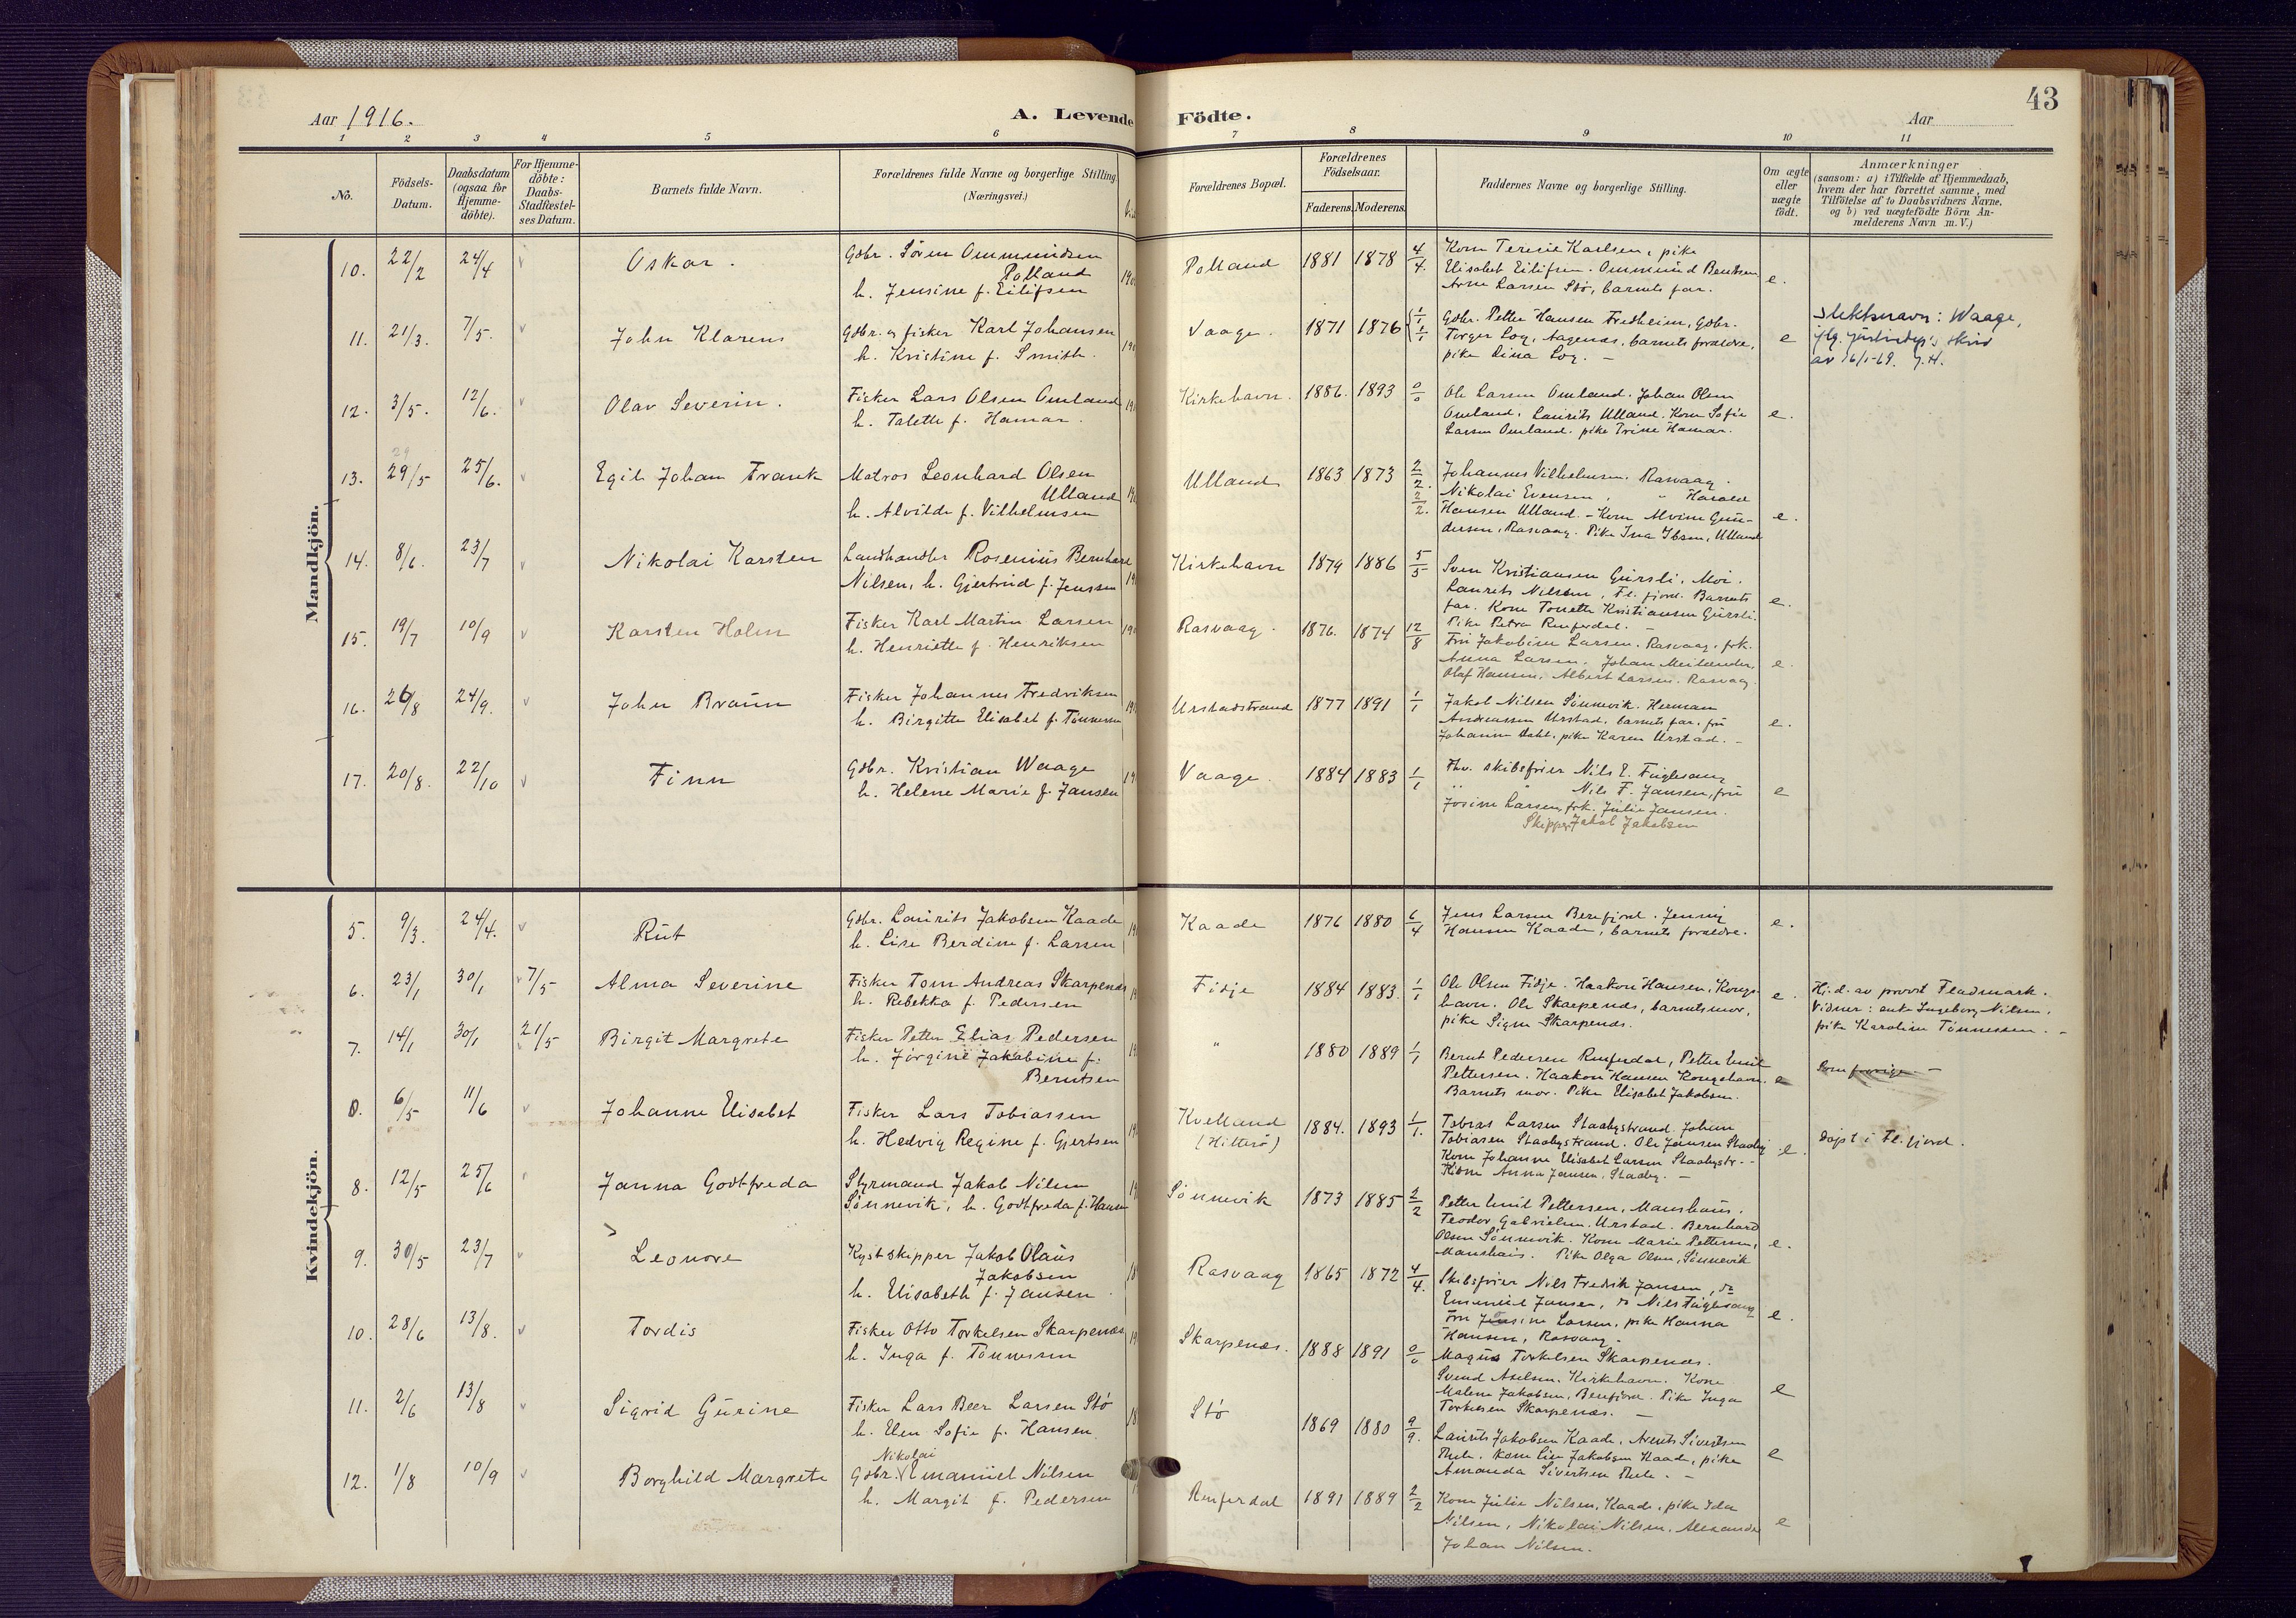 43
Aar 1916.
A. Levende Födte.
Aar
1 2 3 4 5 6 7 8 9 10 11
No.
Födsels-
Datum.
Daabsdatum
(ogsaa for
Hjemme-
döbte).
For Hjemme-
döbte:
Daabs-
Stadfæstel-
ses Datum.
Barnets fulde Navn.
Forældrenes fulde Navne og borgerlige Stilling
(Næringsvei.)
Forældrenes Bopæl.
Forældrenes
Födselsaar.
Faderens. Moderens.
Faddernes Navne og borgerlige Stilling.
Om ægte
eller
uægte
födt.
Anmærkninger
(saasom: a) i Tilfælde af Hjemmedaab,
hvem der har forrettet samme, med
Tilföielse af to Daabsvidners Navne,
og b) ved uægtefödte Börn An-
melderens Navn m.V.)
Mandkjön.
10. 22/2 24/4 Oskar.
Gdbr. Sören Ommundsen
Polland
h. Jensine f. Eilifsen
Polland 1881 1878 4/4.
Kone Teresie Karlsen, pike
Elisabet Eilifsen. Ommund Bentsen
Arne Larsen Stö, barnets far.
e.
11. 21/3. 7/5. John Klarens
Gdbr. og fisker Karl Johansen
h. Kristine f. Smith.
Vaage. 1871 1876 1/1 1/1
Gdbr. Petter Hansen Fredheim, Gdbr.
Torger Log, Aagenæs, barnets forældre,
pike Dina Log. –
e
Slektsnavn: Waage,
av 16/1-69. J.H.
12. 3/5. 12/6. Olav Severin.
Fisker Lars Olsen Omland
h. Talette f. Hamar.
Kirkehavn. 1886. 1893 0/0
Ole Larsen Omland. Johan Olsen
Omland. Laurits Ulland. Kone Sofie
Larsen Omland. pike Trine Hamar.
e.
13. 29/5 25/6. Egil Johan Frank
Matros Leonhard Olsen
Ulland
h. Alvilde f. Vilhelmsen
Ulland 1863 1873 2/2. 2/2.
Johannes Vilhelmsen. Rasvaag.
Nikolai Evensen, " Harald
Hansen Ulland. – Kone Alvine Gun-
dersen, Rasvaag. Pike Ina Ibsen, Ulland
e.
14. 8/6. 23/7 Nikolai Karsten
Landhandler Rosenius Bernhard
Nilsen, h. Gjertrud f. Jenssen
Kirkehavn 1879 1886 5/5
Sven Kristiansen Gursli, Moi.
Laurits Nilsen, Fl. fjord. Barnets
far. Kone Tonette Kristiansen Gursli.
Pike Petra Renferdal. –
e.
15. 19/7 10/9 Karsten Holm
Fisker Karl Martin Larsen
h. Henriette f. Henriksen
Rasvaag. 1876. 1874 12/8
Fru Jakobine Larsen. Rasvaag, frk.
Anna Larsen, Johan Meilænder,
Olaf Hansen, Albert Larsen. Rasvag.
e.
16. 26/8 24/9. John Braun
Fisker Johannes Fredriksen
h. Birgitte Elisabet f. Tönnesen
Urstadstrand 1877 1891 1/1
Jakob Nilsen Sönnevik. Herman
Andreassen Urstad, barnets far, fru
Johanne Dahl, pike Karen Urstad. –
e.
17. 20/8. 22/10 Finn
Gdbr. Kristian Waage
h. Helene Marie f. Jansen
Vaage. 1884 1883 1/1
Fhv. skibsfrier Nils E. Fuglesang
" " Nils F. Jansen, fru
Josine Larsen, frk. Julie Jansen.
Skipper Jakob Jakobsen
e
Kvindekjön.
5. 9/3. 24/4. Rut
Gdbr. Laurits Jakobsen Kaade
h. Lise Berdine f. Larsen
Kaade 1876 1880 6/4
Jens Larsen Berefjord. Jenny
Hansen Kaade, barnets forældre.
e.
6. 23/1 30/1 7/5 Alma Severine
Fisker Tom Andreas Skarpenæs
h. Rebekka f. Pedersen
Fidje 1884 1883. 1/1
Ole Olsen Fidje. Haakon Hansen, Kongs-
havn. Ole Skarpenæs, barnets mor,
pike Signe Skarpenæs.
e.
Hj.d. av provst Fladmark.
Vidner: enke Ingeborg Nilsen,
pike Karoline Tönnessen. –
7. 14/1 30/1 21/5 Birgit Margrete
Fisker Petter Elias Pedersen
h. Jörgine Jakobine f.
Berntsen
" 1880 1889 1/1
Bernt Pedersen Renferdal, Petter Emil
Pettersen. Haakon Hansen Kongshavn.
Barnets mor. Pike Elisabet Jakobsen.
e
Som forrige –
8. 6/5 11/6 Johanne Elisabet
Fisker Lars Tobiassen
h. Hedvig Regine f. Gjertsen
Kvelland
(Hitterö)
1884. 1893 1/1.
Tobias Larsen Staabystrand. Johan
Tobiasen Staabystrand. Ole Jansen Staaby
Kone Johanne Elisabet Larsen Staabystr. –
Kone Anna Jansen, Staaby. –
e.
Döpt i Fl. fjord.
8. 12/5 25/6 Janna Godtfreda
Styrmand Jakob Nilsen
Sönnevik, h. Godtfreda f. Hansen
Sönnevik 1873 1885 2/2
Petter Emil Pettersen, Manshaus.
Teodor Gabrielsen, Urstad. Bernhard
Olsen Sönnevik. Kone Marie Pettersen,
Manshaus. Pike Olga Olsen, Sönnevik
e.
9. 30/5 23/7 Leonore
Kystskipper Jakob Olaus
Jakobsen
h. Elisabeth f. Jansen
Rasvaag 1865 1872 4/4.
Skibsfrier Nils Fredrik Jansen, do
Emanuel Jansen, do Nils Fuglesang
Fru Josine Larsen, pike Hanna
Hansen, Rasvaag.
e.
10. 28/6 13/8. Tordis
Fisker Otto Torkelsen Skarpenæs
h. Inga f. Tönnesen
Skarpenæs. 1888 1891 0/0
Magnus Torkelsen Skarpenæs.
Svend Axelsen. Kirkehavn. Kone
Malene Jakobsen, Berefjord. Pike Inga
Torkelsen Skarpenæs. –
e
11. 2/6 13/8 Sigrid Gurine
Fisker Lars Beer Larsen Stö
h. Elen Sofie f. Hansen.
Stö 1869 1880 9/9.
Laurits Jakobsen Kaade, Arents Sivertsen
kone Lise Jakobsen Kaade, pike
Amanda Sivertsen
e
12. 1/8 10/9 Borghild Margrete
Nikolai
Gdbr. Emanuel Nilsen
h. Margit f. Pedersen
Renferdal 1891 1889 2/2
Kone Julie Nilsen, Kaade, pike Ida
Nilsen, Nikolai Nilsen, Alexander
Johan Nilsen.
e